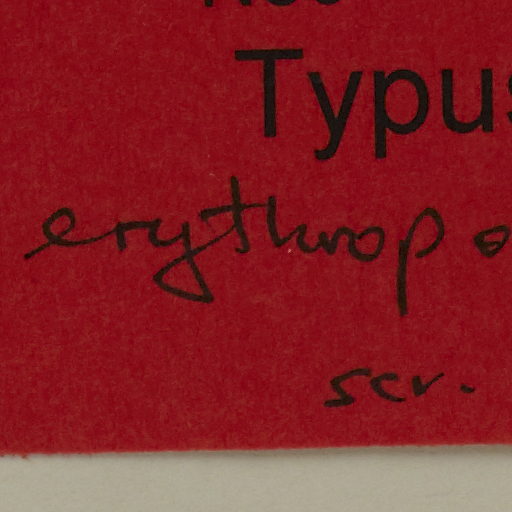 Typus
erythropo
scr.